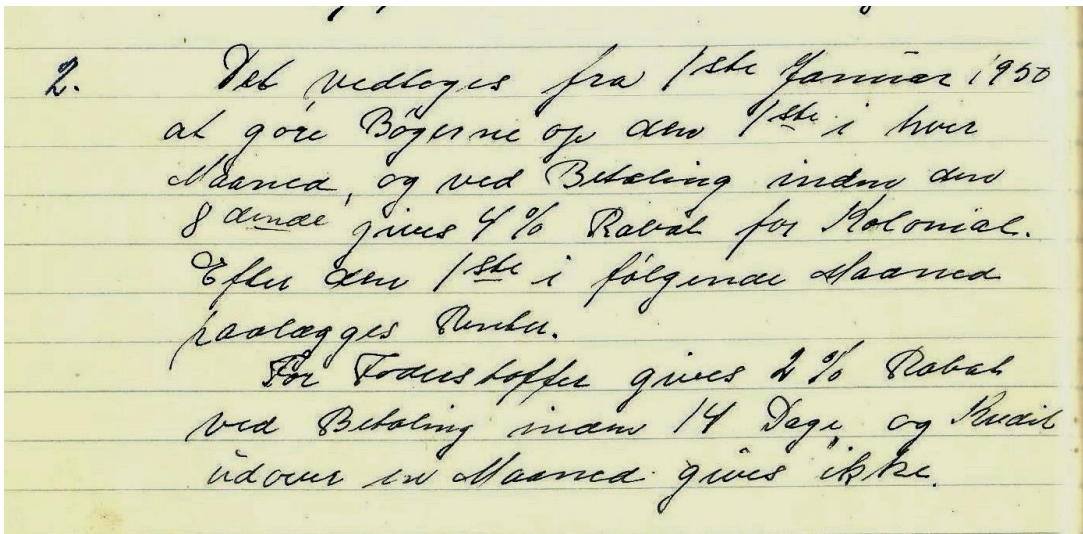 2. Det vedtoges fra 1ste Januar 1950
at göre Bögerne op den 1ste i hver
Maaned, og ved Betaling inden den
8dende gives 4% Rabat for Kolonial.
Efter den 1ste i følgende Maaned
paalægges Renter.
For Foderstoffer gives 2% Rabat
ved Betaling inden 14 Dage, og Kredit
udover en Maaned gives ikke.